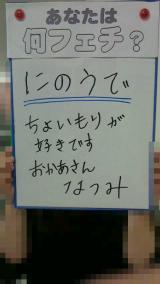 あなたは
何フェチ?
にのうで
ちょいもりが
好きです
おかあさん
なつみ